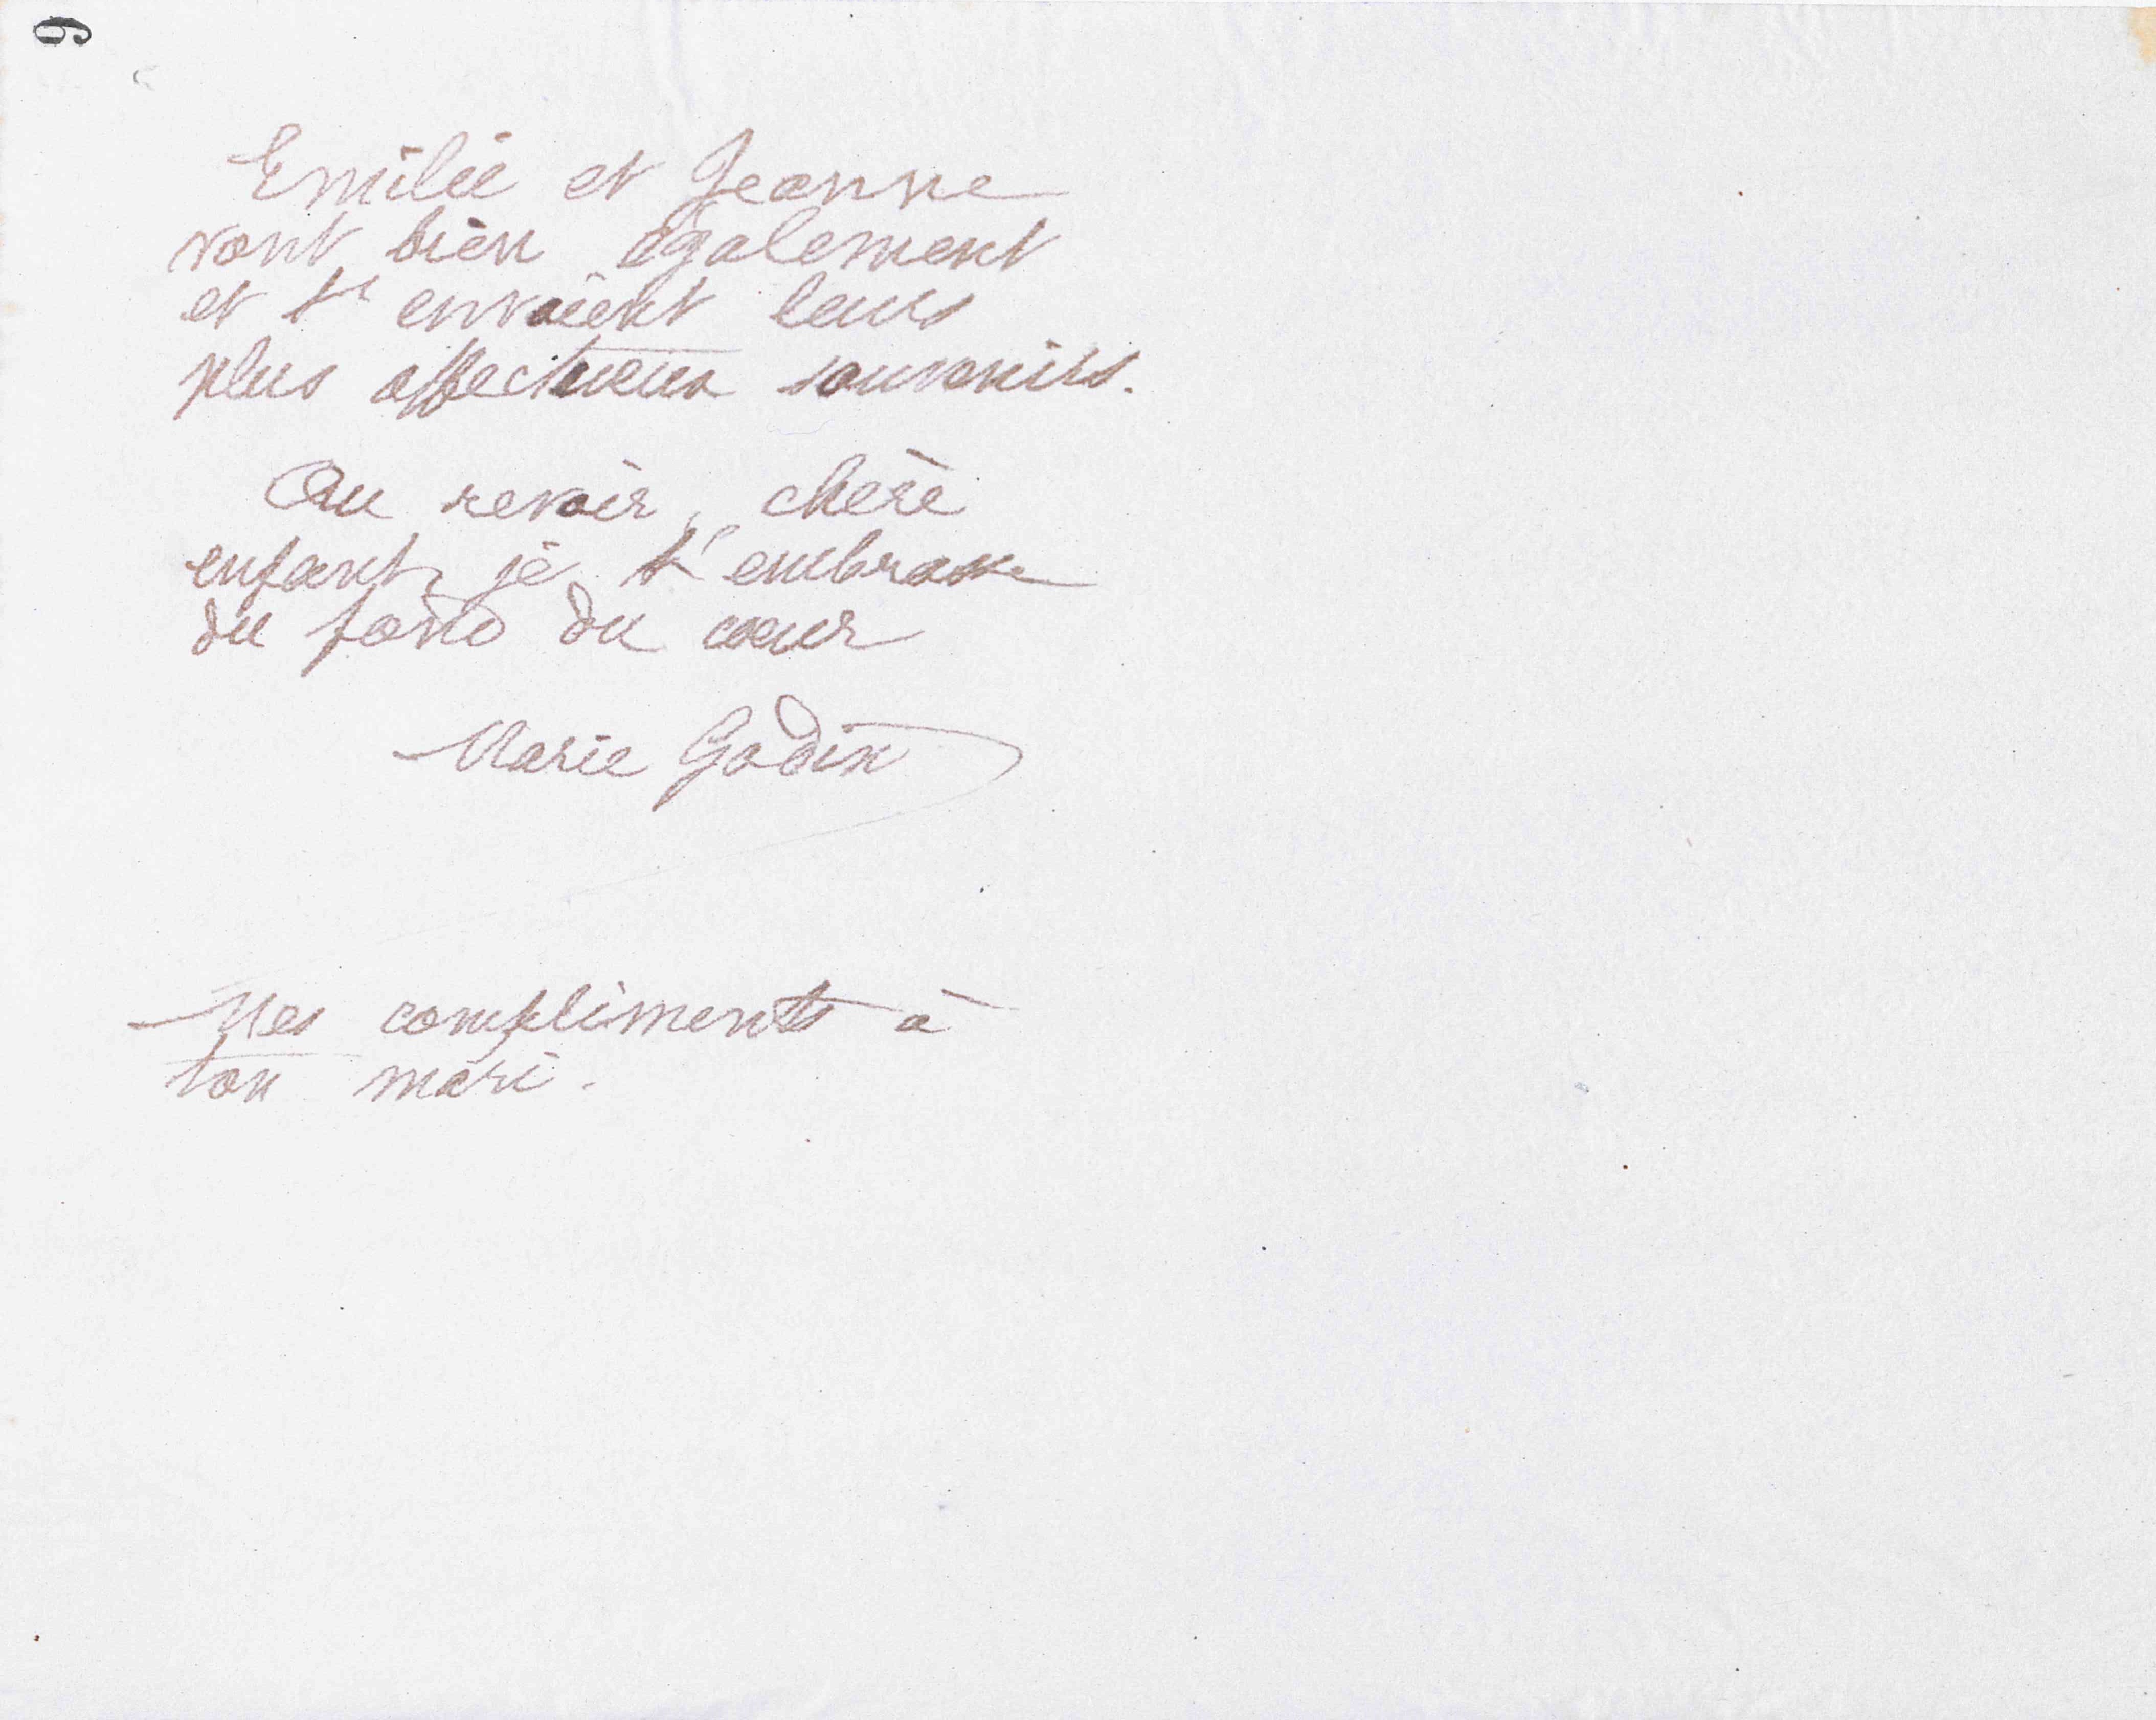 6
Emilie et Jeanne
vont bien également
et t'envoient leurs
plus affectueux souvenirs.
Au revoir, chère
enfant, je t'embrasse
du fond du cœur
Marie Godin
Mes compliments à
ton mari.